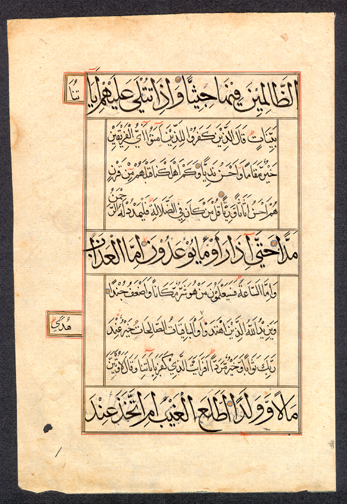 الظَّالِمِينَ فِيهَا جِثِيًّا وَإِذَا تُتْلَى عَلَيْهِمْ آيَا
تُنَا
بَيِّنَاتٍ قَالَ الَّذِينَ كَفَرُوا لِلَّذِينَ آمَنُوا أَيُّ الْفَرِيقَيْنِ
خَيْرٌ مَقَامًا وَأَحْسَنُ نَدِيًّا وَكَمْ أَهْلَكْنَا قَبْلَهُمْ مِنْ قَرْنٍ
هُمْ أَحْسَنُ أَثَاثًا وَرِءْيًا قُلْ مَنْ كَانَ فِي الضَّلَالَةِ فَلْيَمْدُدْ لَهُ الرَّحْمَنُ
مَدًّا حَتَّى إِذَا رَأَوْا مَا يُوعَدُونَ إِمَّا الْعَذَابَ
وَإِمَّا السَّاعَةَ فَسَيَعْلَمُونَ مَنْ هُوَ شَرٌّ مَكَانًا وَأَضْعَفُ جُنْدًا
وَيَزِيدُ اللَّهُ الَّذِينَ اهْتَدَوْا وَالْبَاقِيَاتُ الصَّالِحَاتُ خَيْرٌ عِنْدَ
هُدًى
رَبِّكَ ثَوَابًا وَخَيْرٌ مَرَدًّا أَفَرَأَيْتَ الَّذِي كَفَرَ بِآيَاتِنَا وَقَالَ لَأُوتَيَنَّ
مَالًا وَوَلَدًا أَطَّلَعَ الْغَيْبَ أَمِ اتَّخَذَ عِنْدَ